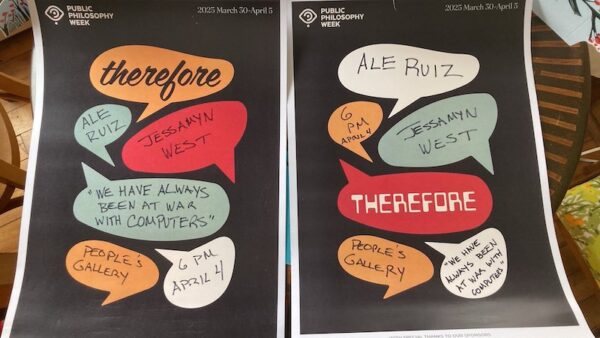 PUBLIC
PHILOSOPHY
WEEK
2025 March 30-April 5
therefore
ALE
RUIZ
JESSAMYN
WEST
"WE HAVE ALWAYS
BEEN AT WAR
WITH COMPUTERS"
PEOPLE'S
GALLERY
6 PM
APRIL 4
PUBLIC
PHILOSOPHY
WEEK
2025 March 30-April 5
ALE RUIZ
6
PM
APRIL 4
JESSAMYN
WEST
THEREFORE
PEOPLE'S
GALLERY
"WE HAVE
ALWAYS BEEN
AT WAR WITH
COMPUTERS"
WITH SPECIAL THANKS TO OUR SPONSORS